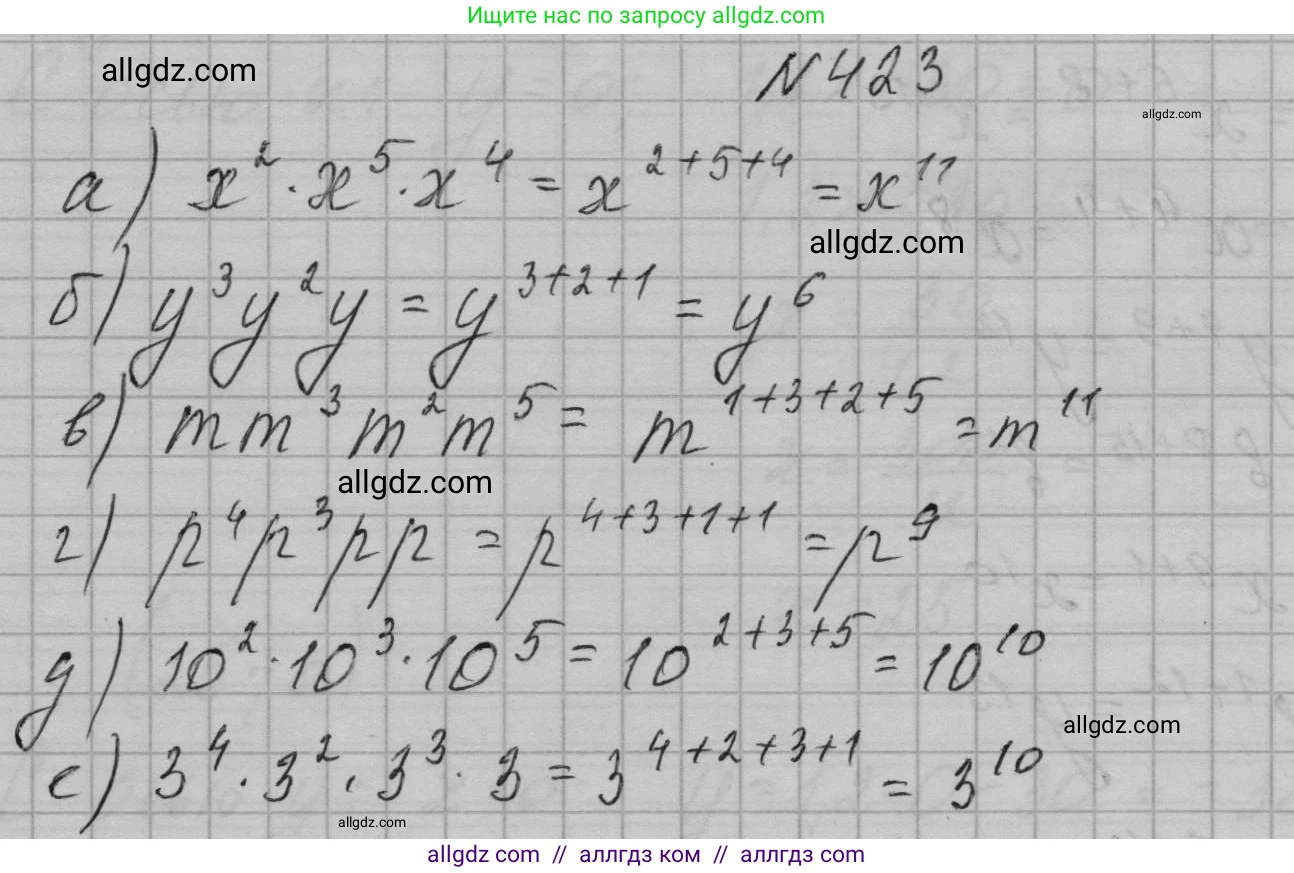 Ищите нас по запросу allgdz.com
allgdz.com
N 423
allgdz.com
а) x² · x⁵ · x⁴ = x²⁺⁵⁺⁴ = x¹¹
allgdz.com
б) y³y²y = y³⁺²⁺¹ = y⁶
в) mm³m²m⁵ = m¹⁺³⁺²⁺⁵ = m¹¹
allgdz.com
г) p⁴p³pp = p⁴⁺³⁺¹⁺¹ = p⁹
д) 10² · 10³ · 10⁵ = 10²⁺³⁺⁵ = 10¹⁰
allgdz.com
е) 3⁴ · 3² · 3³ · 3 = 3⁴⁺²⁺³⁺¹ = 3¹⁰
allgdz.com
allgdz com // аллгдз ком // аллгдз com